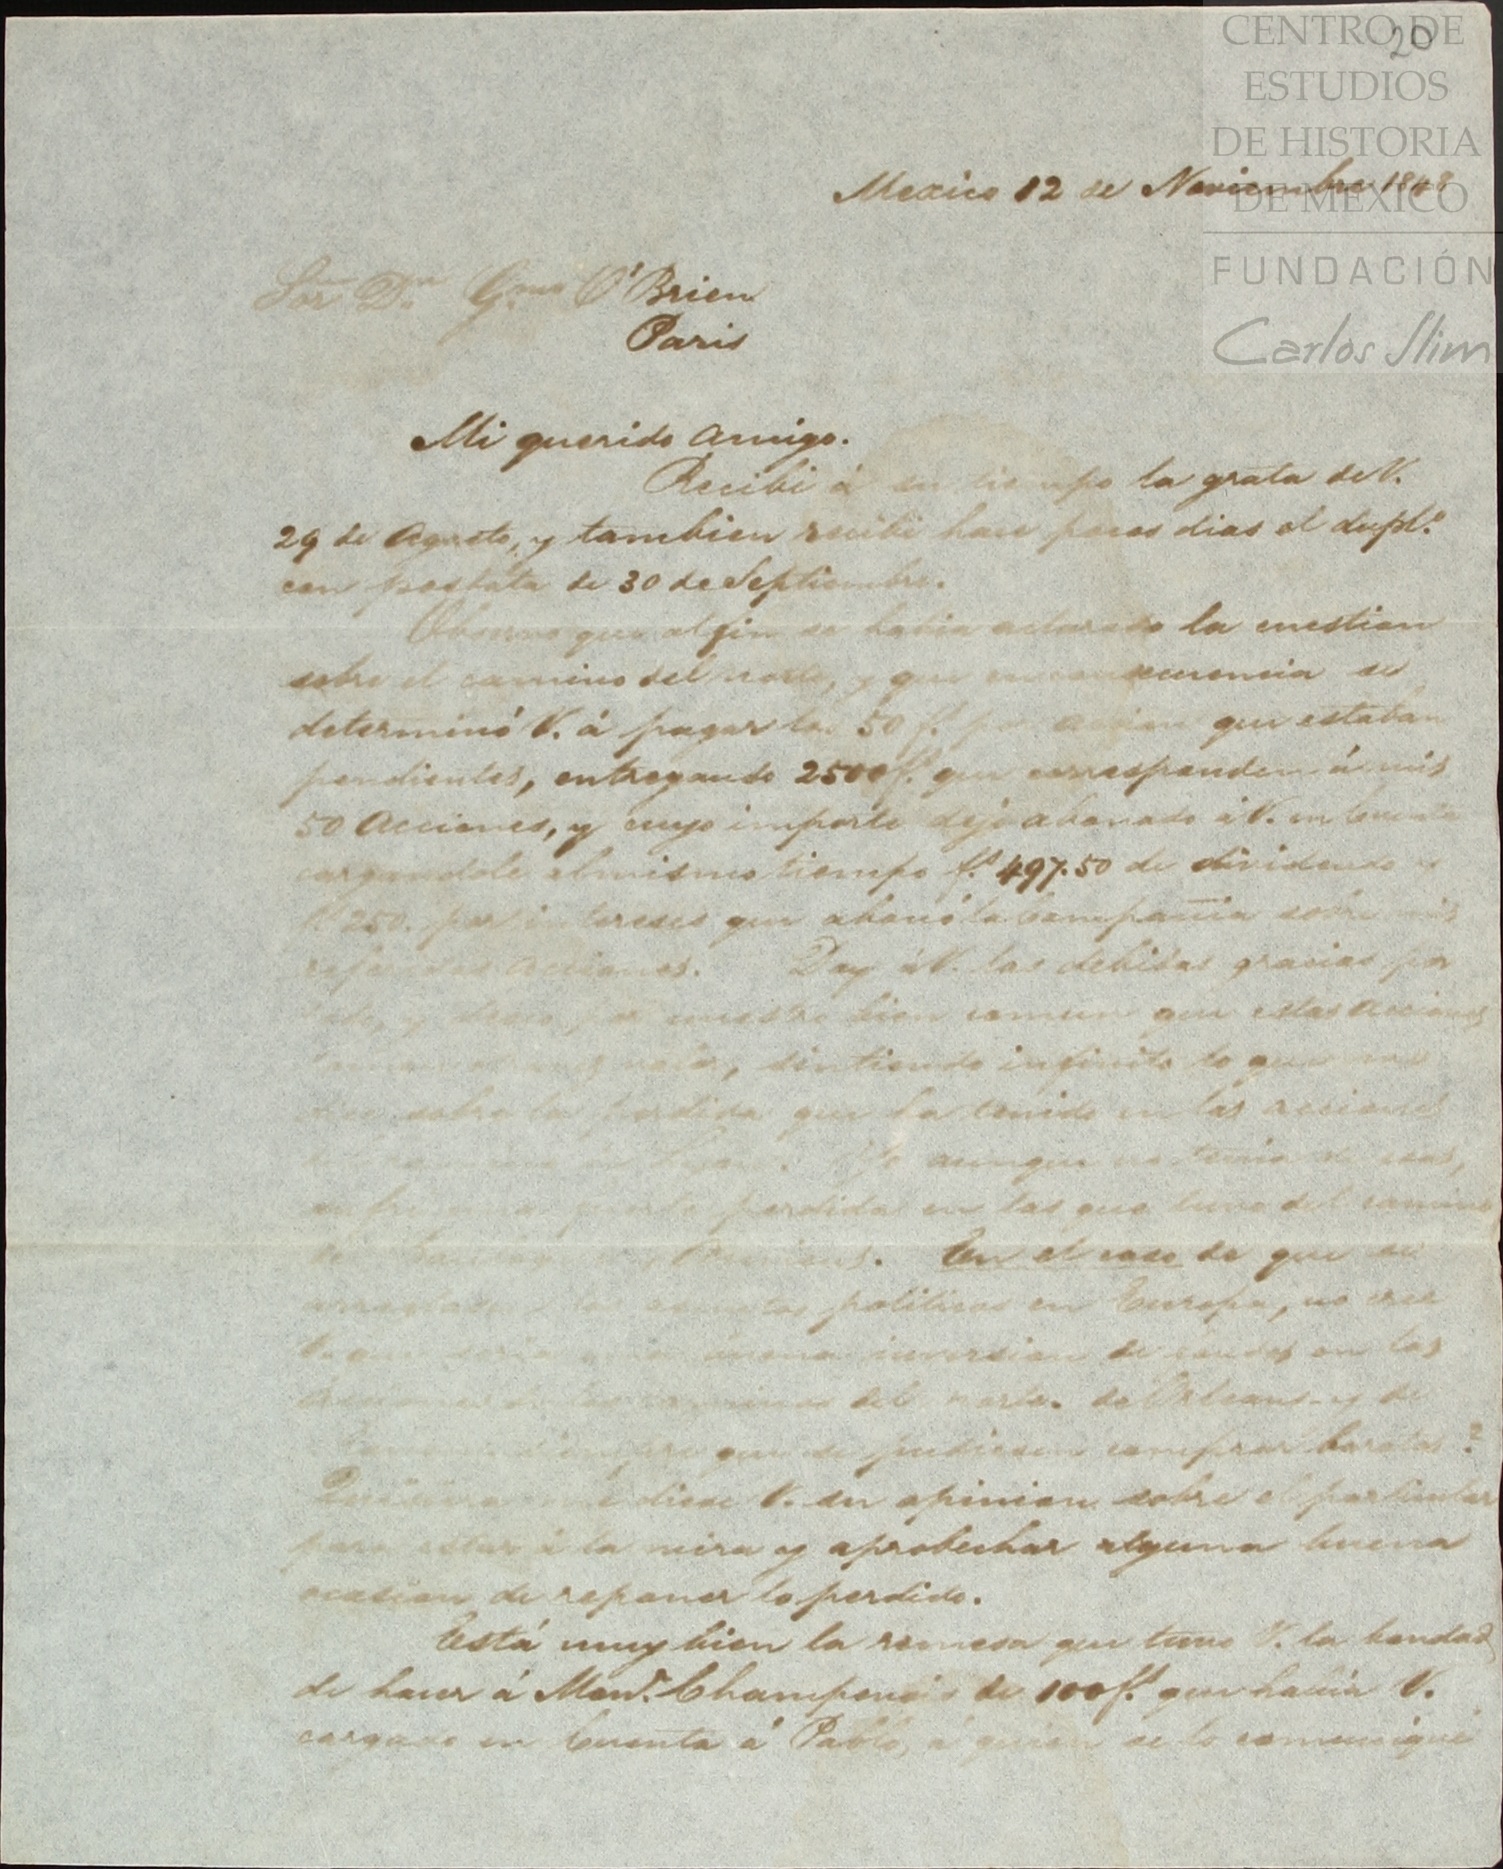 20
CENTRO DE
ESTUDIOS
DE HISTORIA
DE MÉXICO
FUNDACIÓN
Carlos Slim
Mexico 12 de Noviembre 1848
Sor. Dn. Gmo. O'Brien
Paris
Mi querido amigo.
Recibi á su tiempo la grata de V.
29 de Agosto, y tambien recibi hace pocos dias el dupl.º
con postata de 30 de Septiembre.
Observo que al fin se habia aclarado la cuestion
sobre el camino del norte, y que en consecuencia se
determinó V. á pagar los 50 f.s por accion que estaban
pendientes, entregando 2500 f.s que corresponden á mis
50 Acciones, y cuyo importe dejo abonado á V. en Cuenta
cargandole al mismo tiempo f.s 497.50 de dividendo y
250. por intereses que abonó la Compañia sobre mis
referidas Acciones. Doy á V. las debidas gracias por
todo, y deseo por nuestro bien comun que estas acciones
valor, sintiendo infinito lo que me
dice sobre la perdida que ha tenido en las acciones
Yo aunque no tenia de esas,
sufri una fuerte perdida en las que tuve del camino
En el caso de que se
arreglasen los asuntos politicos en Europa, no cree
V. que seria una buena inversion de fondos en las
Acciones de los caminos del norte. de Orleans y de
siempre que se pudiesen comprar baratas?
Quisiera me diese V. su opinion sobre el particular
para estar á la mira y aprobechar alguna buena
ocasion de reponer lo perdido.
Está muy bien la remesa que tuvo V. la bondad
de hacer á Monr. Champenois de 100 f.s que habia V.
cargado en Cuenta á Pablo, á quien se lo comuniqué